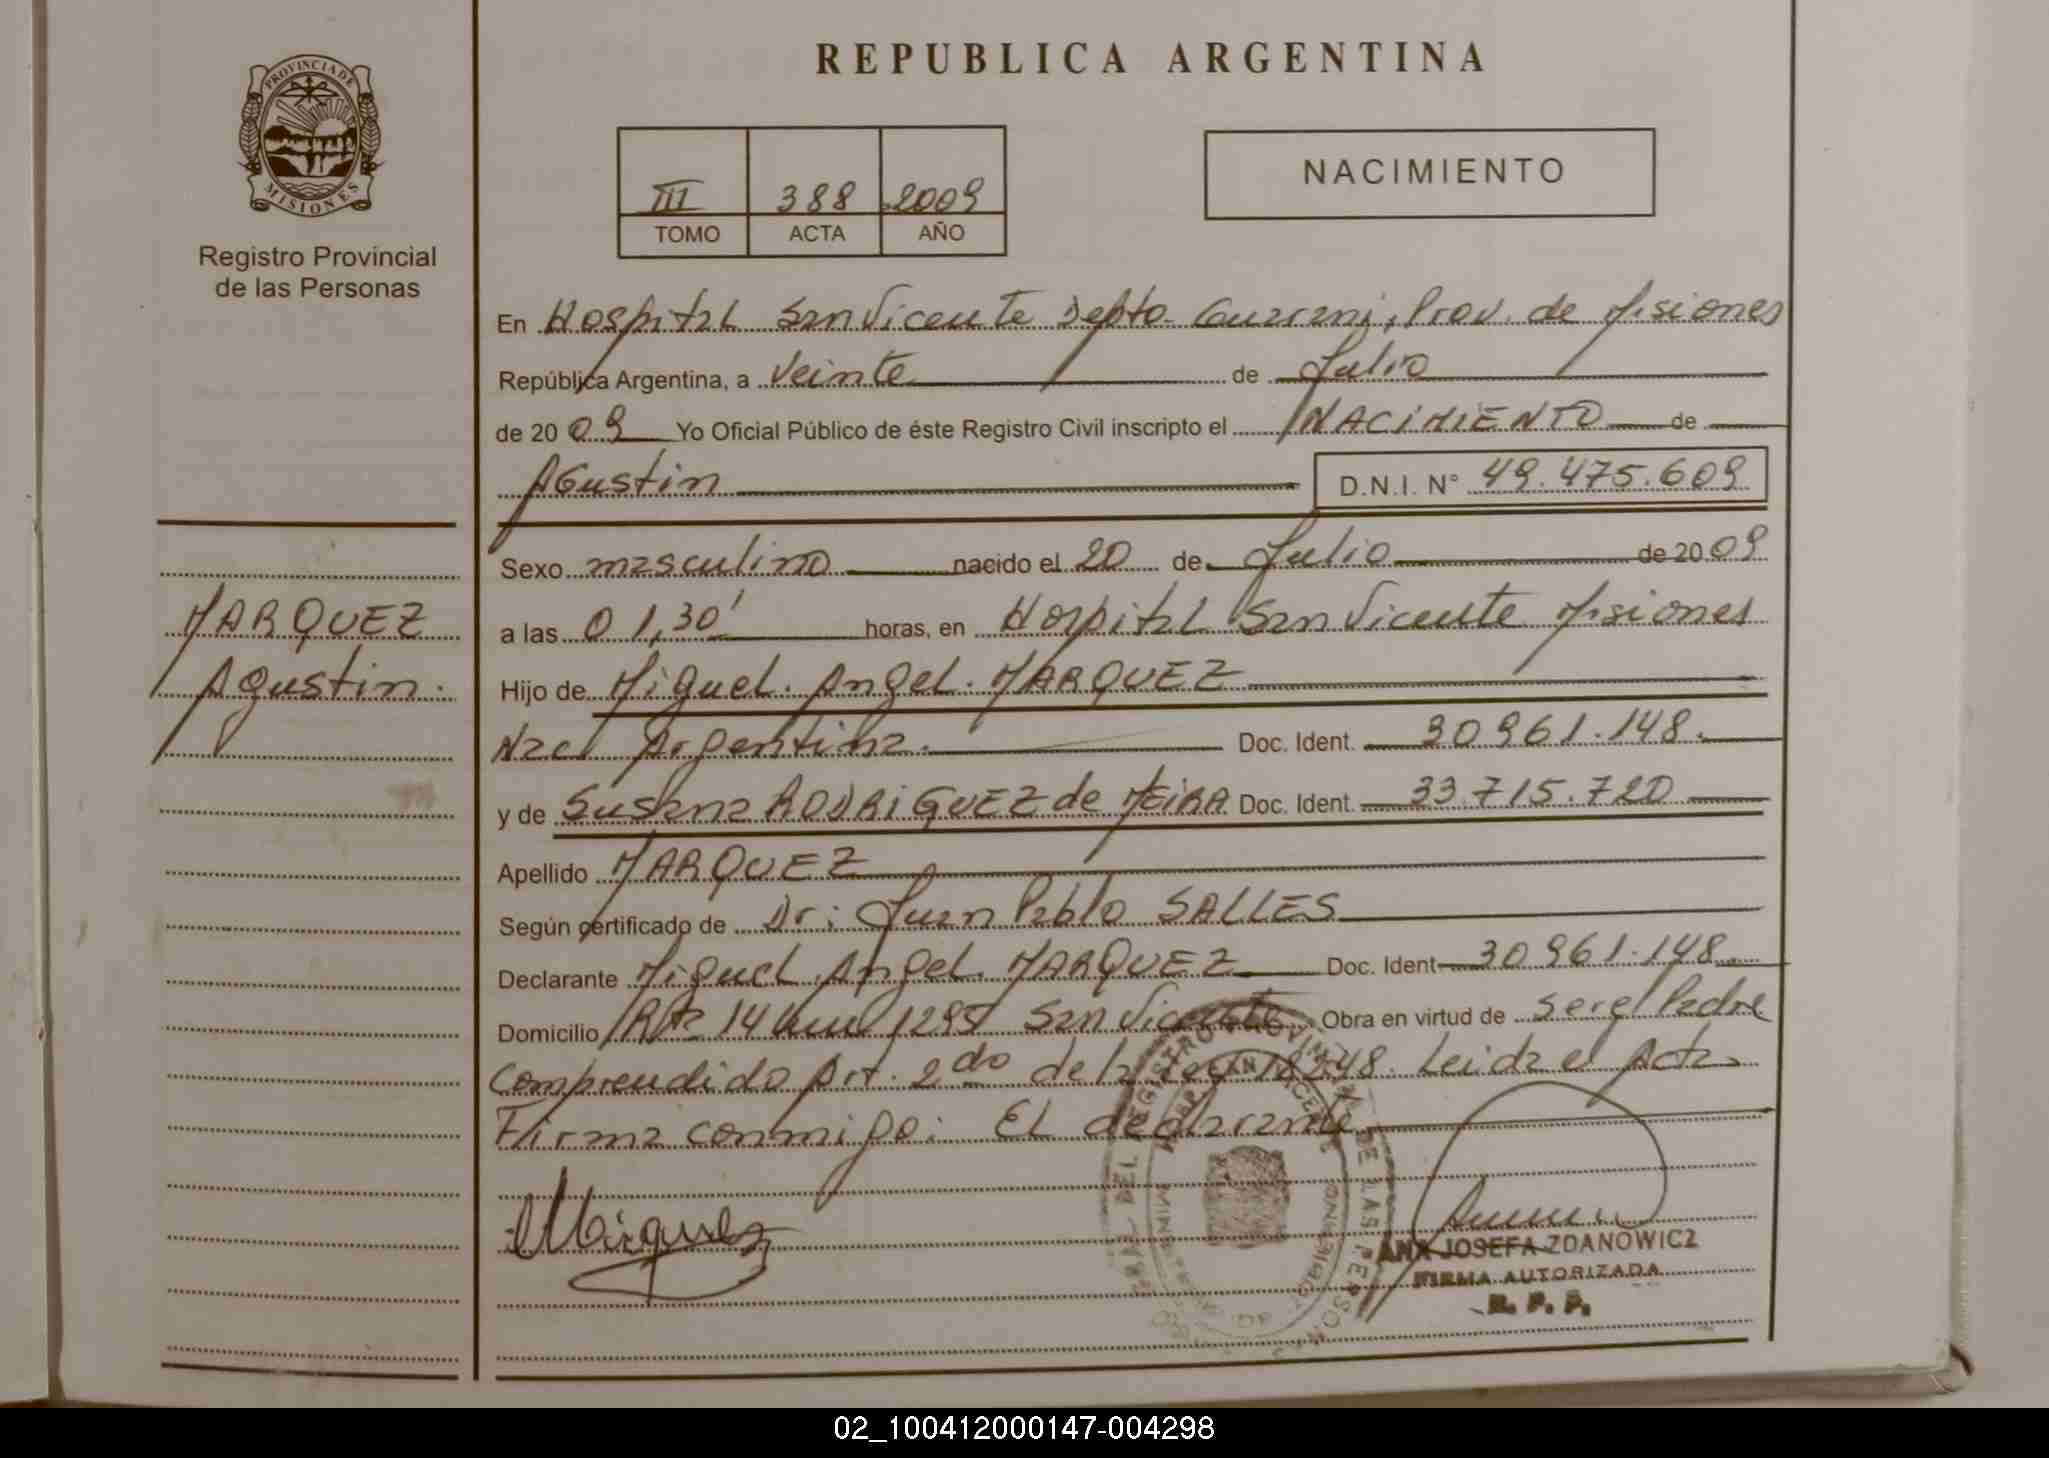 PROVINCIA DE
MISIONES
Registro Provincial
de las Personas
MARQUEZ
Agustin.
REPUBLICA ARGENTINA
III 388 2009
TOMO ACTA AÑO
NACIMIENTO
En Hospital San Vicente Depto. Guarani, Prov. de Misiones
República Argentina, a Veinte de Julio
de 20 09 Yo Oficial Público de éste Registro Civil inscripto el NACIMIENTO de
Agustin D.N.I. N° 49.475.609
Sexo masculino nacido el 20 de Julio de 20 09
a las 01,30' horas, en Hospital San Vicente Misiones
Hijo de Miguel. Angel. MARQUEZ
Nac Argentina. Doc. Ident. 30961.148.
y de Susana RODRIGUEZ de MEIRA Doc. Ident. 33.715.720
Apellido MARQUEZ
Según certificado de Dr: Juan Pablo SALLES
Declarante Miguel Angel. MARQUEZ Doc. Ident 30961.148.
Domicilio Rta 14 km 1295 San Vicente Obra en virtud de ser el Padre
Comprendido Art. 2do de la Ley 18248. Leida el Acta
Firma conmigo: El declarante
ANA JOSEFA ZDANOWICZ
FIRMA AUTORIZADA
R. P. P.
02_100412000147-004298